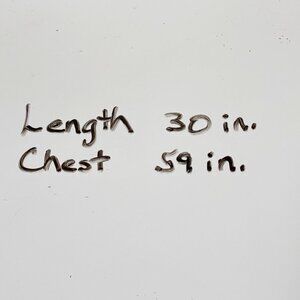 Length 30 in.
Chest 59 in.